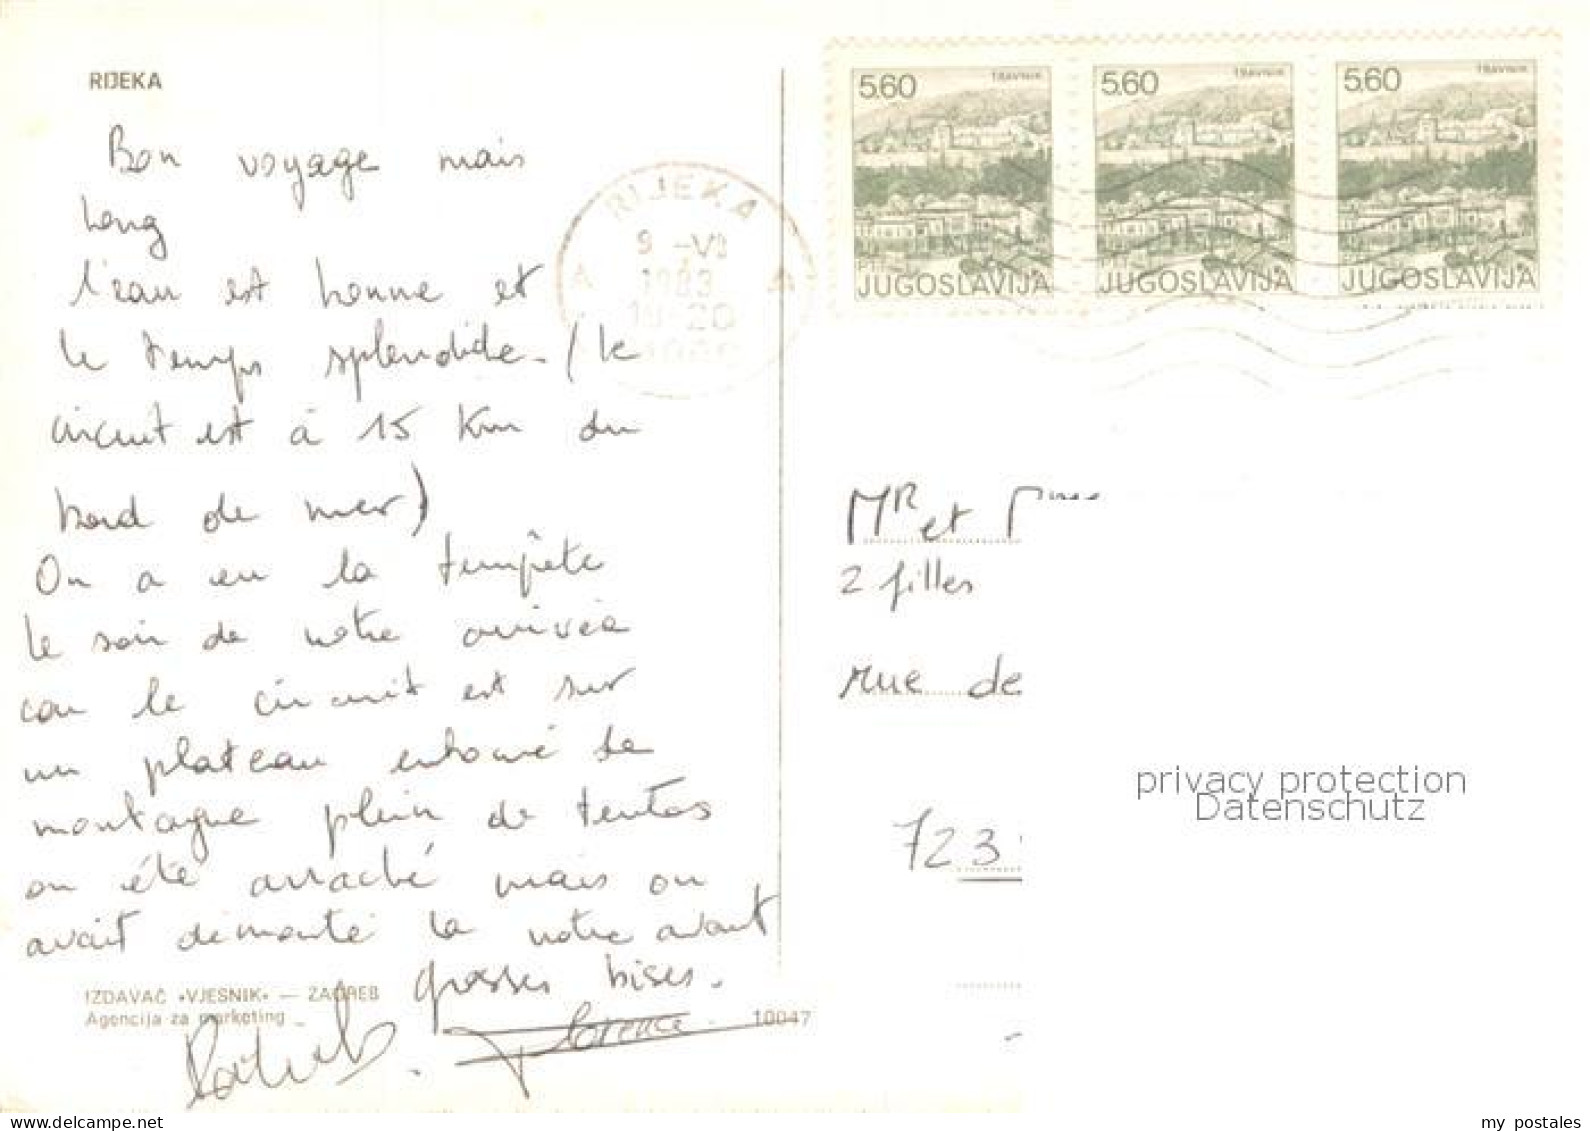 RIJEKA
Bon voyage mais
long
l'eau est bonne et
le temps splendide. (le
circuit est à 15 Km du
bord de mer)
On a eu la tempête
le soir de notre arrivée
car le circuit est sur
un plateau entouré de
montagne plein de tentes
on été arraché mais on
avait démonté la notre avant
grosses bises.
Florence
IZDAVAČ «VJESNIK» — ZAGREB
Agencija za marketing
10047
RIJEKA
9 -VI
1983
A A
5.60 TRAVNIK
JUGOSLAVIJA
5.60 TRAVNIK
JUGOSLAVIJA
5.60 TRAVNIK
JUGOSLAVIJA
MR et
2 filles
rue de
723
privacy protection
Datenschutz
my postales